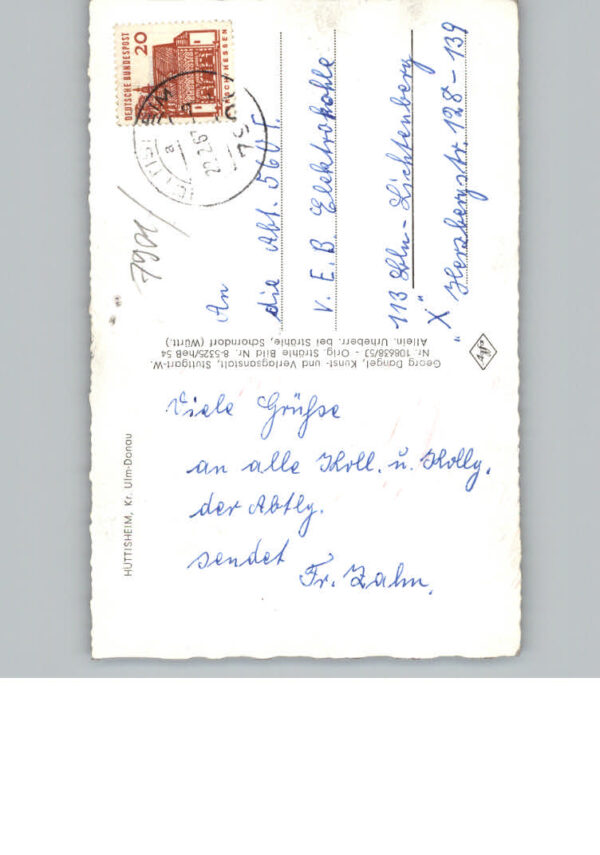 DEUTSCHE BUNDESPOST
20
HESSEN
22.2.67
7901
An
die Abt. 5601.
V. E. B. Elektrokohle
113 Bln-Lichtenberg
"X" Herzbergstr. 128-139
Georg Dangel, Kunst- und Verlagsanstalt, Stuttgart-W.
Nr. 108638/53 - Orig. Strähle Bild Nr. 8-5325/heB 54
Allein. Urheberr. bei Strähle, Schorndorf (Württ.)
HÜTTISHEIM, Kr. Ulm-Donau
Viele Grüße
an alle Koll. u. Kollg.
der Abtlg.
sendet
Fr. Zahn.